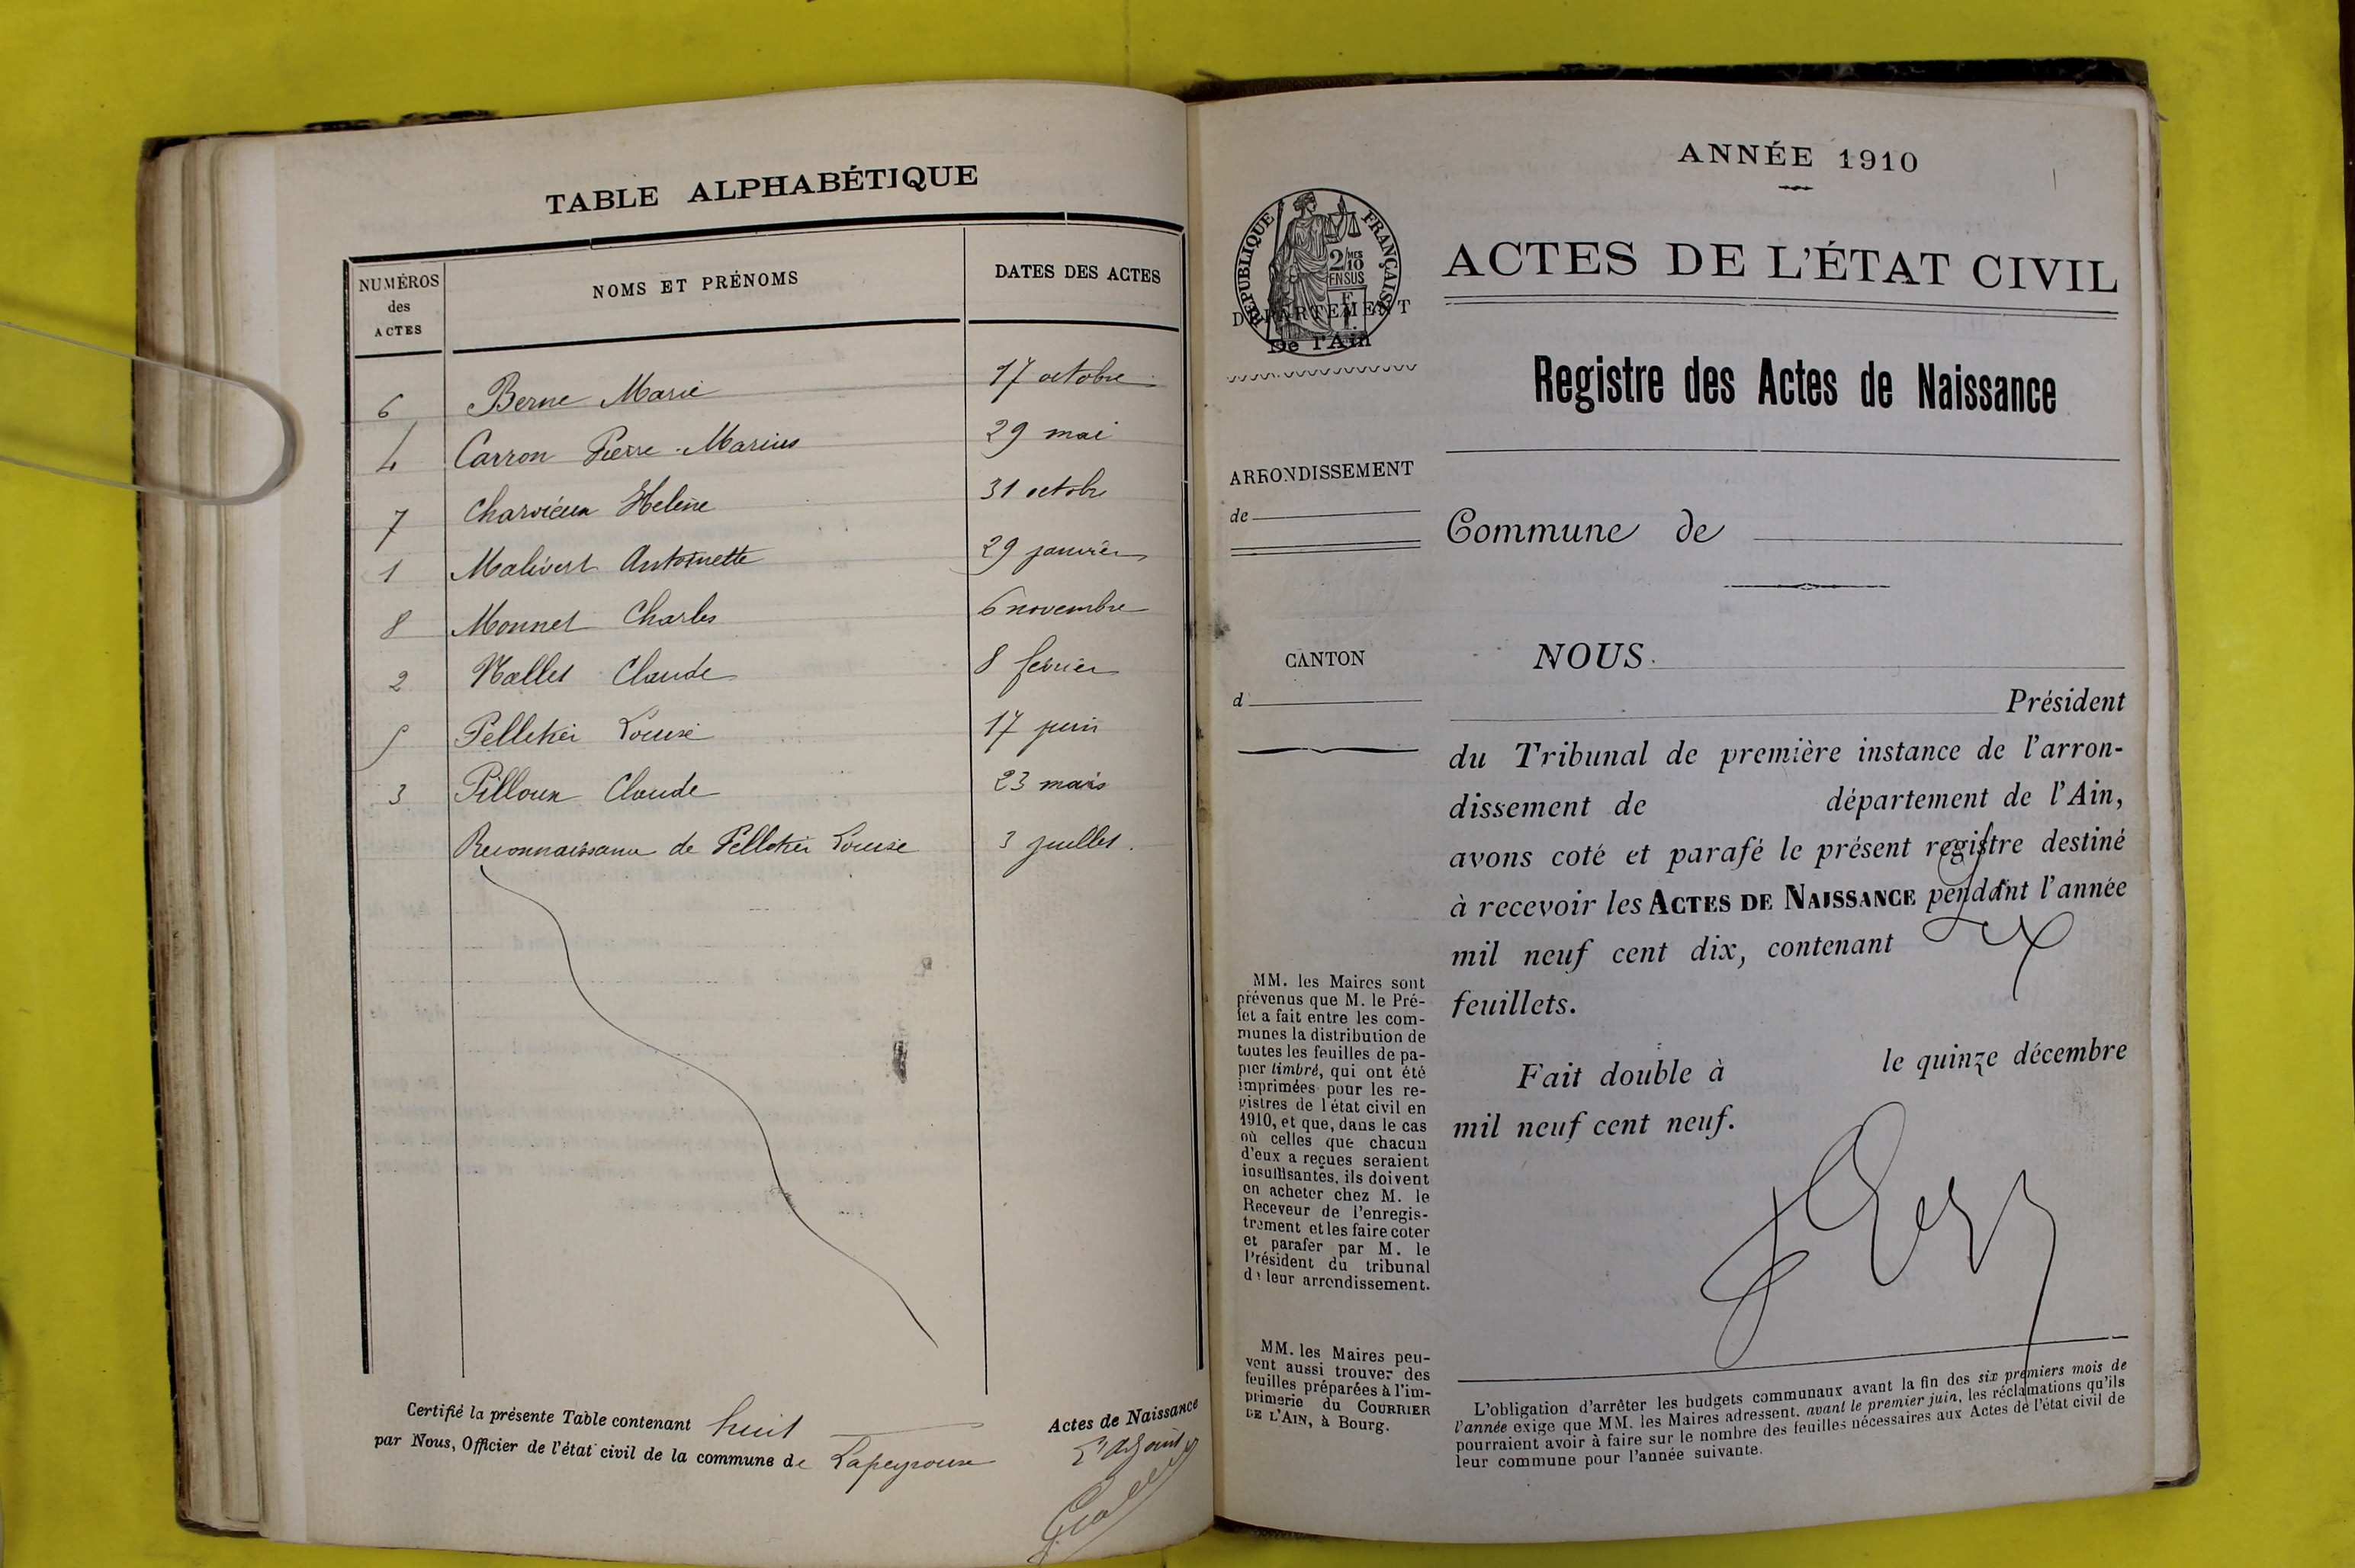 TABLE ALPHABÉTIQUE
NUMÉROS des ACTES
NOMS ET PRÉNOMS
DATES DES ACTES
6 Berne Marie 17 octobre
4 Carron Pierre-Marius 29 mai
7 Charvieux Helene 31 octobre
1 Malivert Antoinette 29 janvier
8 Monnet Charles 6 novembre
2 Nallet Claude 8 fevrier
5 Pelletier Louise 17 juin
3 Pilloux Claude 23 mars
Reconnaissance de Pelletier Louise 3 juillet.
Certifié la présente Table contenant huit Actes de Naissance
par Nous, Officier de l'état civil de la commune de Lapeyrouse
L'adjoint
ANNÉE 1910
RÉPUBLIQUE FRANÇAISE
2/10 MES
EN SUS
DÉPARTEMENT
De l'Ain
ACTES DE L'ÉTAT CIVIL
Registre des Actes de Naissance
ARRONDISSEMENT
de
Commune de
CANTON
d
NOUS
Président
du Tribunal de première instance de l'arron-
dissement de département de l'Ain,
avons coté et parafé le présent registre destiné
à recevoir les ACTES DE NAISSANCE pendant l'année
mil neuf cent dix, contenant
feuillets.
Fait double à le quinze décembre
mil neuf cent neuf.
MM. les Maires sont
prévenus que M. le Pré-
fet a fait entre les com-
munes la distribution de
toutes les feuilles de pa-
pier timbré, qui ont été
imprimées pour les re-
gistres de l'état civil en
1910, et que, dans le cas
où celles que chacun
d'eux a reçues seraient
insuffisantes, ils doivent
en acheter chez M. le
Receveur de l'enregis-
trement et les faire coter
et parafer par M. le
Président du tribunal
de leur arrondissement.
MM. les Maires peu-
vent aussi trouver des
feuilles préparées à l'im-
primerie du COURRIER
DE L'AIN, à Bourg.
L'obligation d'arrêter les budgets communaux avant la fin des six premiers mois de
l'année exige que MM. les Maires adressent, avant le premier juin, les réclamations qu'ils
pourraient avoir à faire sur le nombre des feuilles nécessaires aux Actes de l'état civil de
leur commune pour l'année suivante.